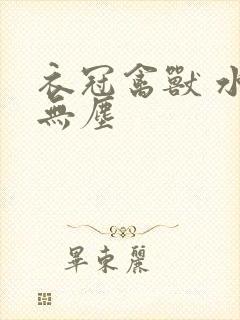 衣冠禽獸 水
無塵
畢東麗